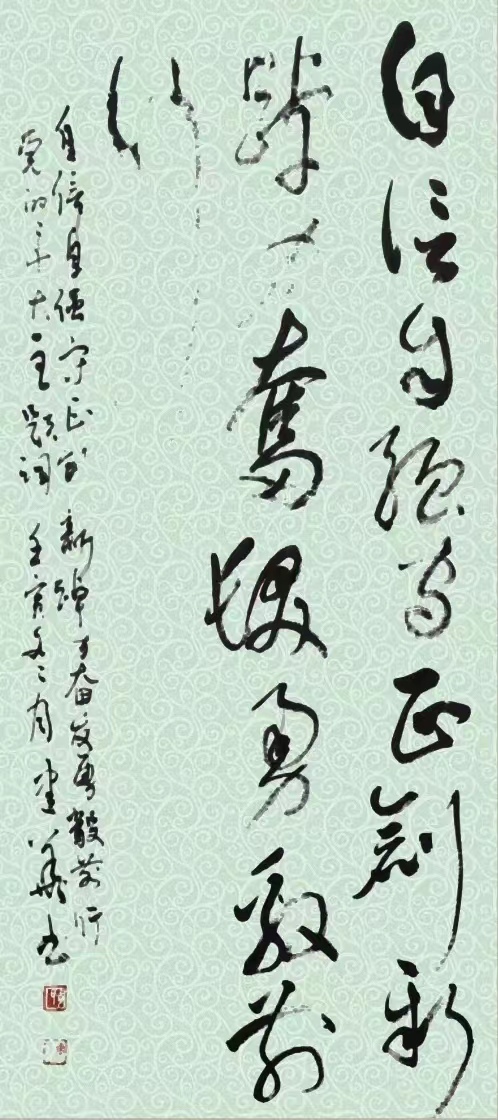 自信自強守正創新
踔厉奮發勇毅前
行
自信自强守正创新踔厉奋发勇毅前行
党的二十大主题词 壬寅冬月 书